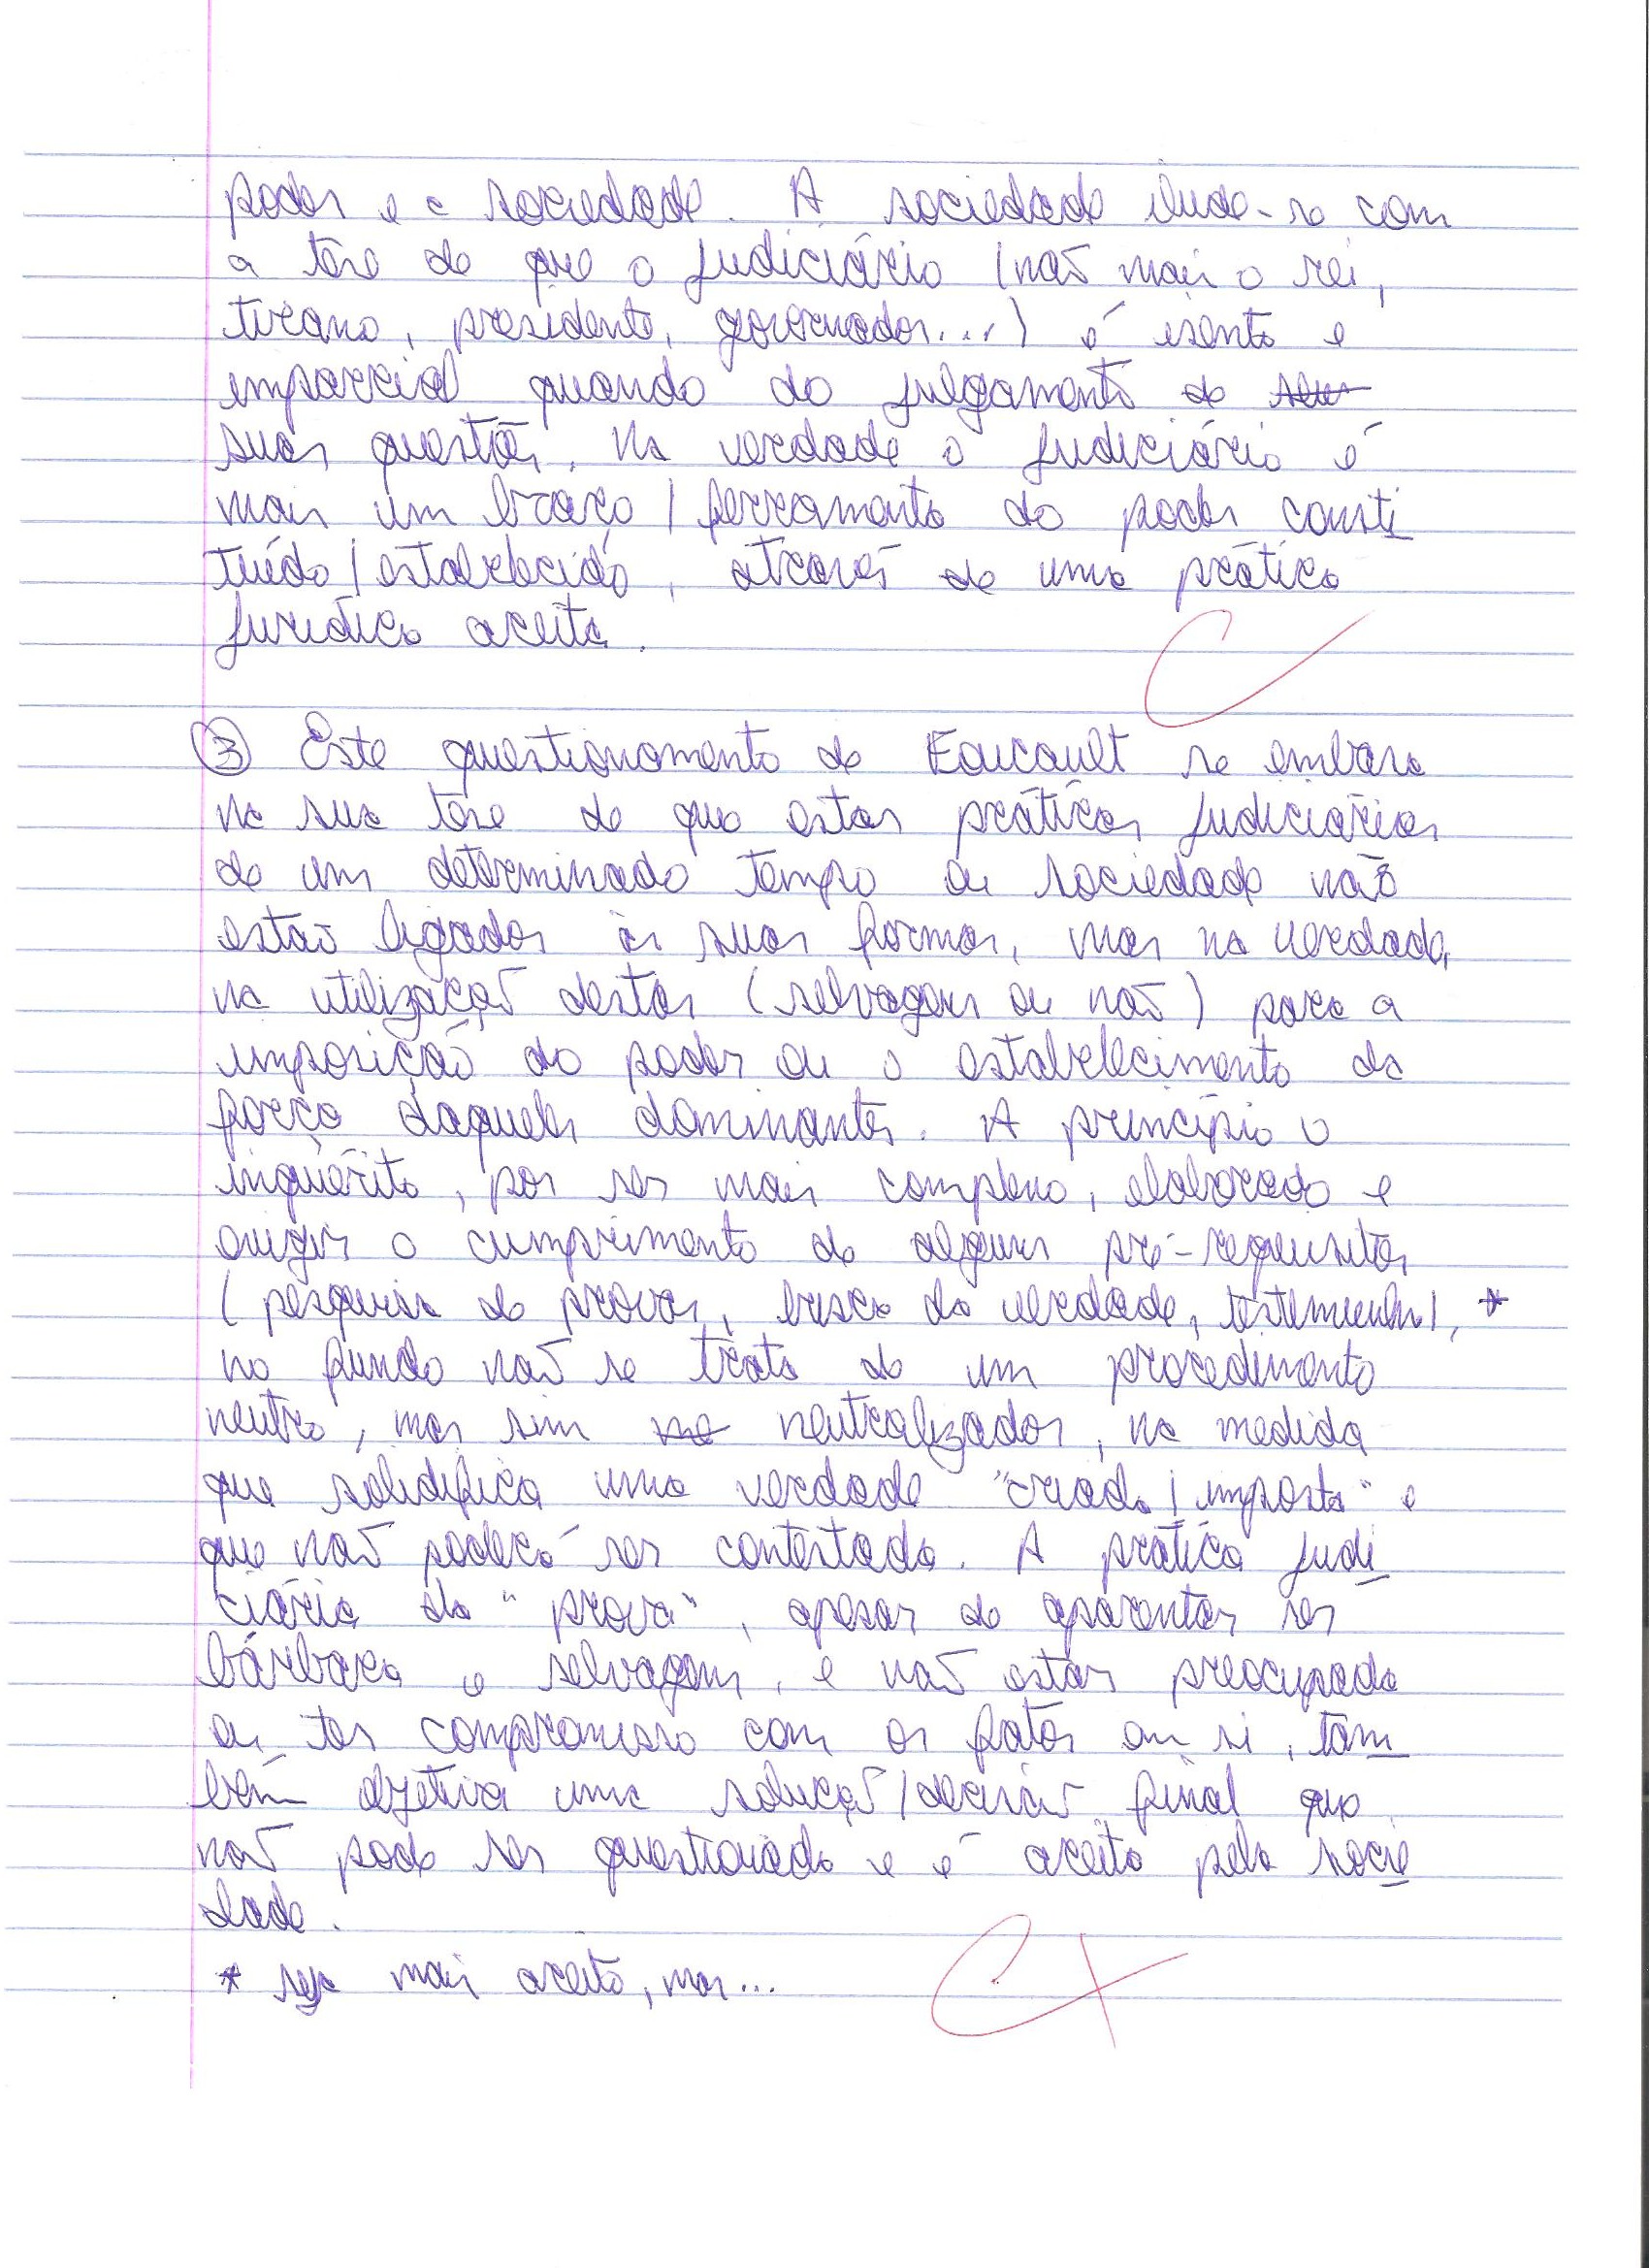 poder e a sociedade. A sociedade ilude-se com
a tese de que o judiciário (não mais o rei,
tirano, presidente, governador...) é isento e
imparcial quando do julgamento de
suas questões. Na verdade o judiciário é
mais um braço / ferramenta do poder consti
tuído / estabelecido, através de uma prática
jurídica aceita.
C
③ Este questionamento de Foucault se embasa
na sua tese de que estas práticas judiciárias
de um determinado tempo ou sociedade não
estão ligados às suas formas, mas na verdade,
na utilização destas (selvagens ou não) para a
imposição do poder ou o estabelecimento da
força daqueles dominantes. A princípio o
inquérito, por ser mais complexo, elaborado e
exigir o cumprimento de alguns pré-requisitos
(pesquisa de provas, busca da verdade, testemunhas), *
no fundo não se trata de um procedimento
neutro, mas sim neutralizador, na medida
que solidifica uma verdade "criada / imposta" e
que não poderá ser contestada. A prática judi
ciária da "prova", apesar de aparentar ser
bárbara e selvagem, e não estar preocupada
ou ter compromisso com os fatos em si, tam
bém objetiva uma solução / decisão final que
não pode ser questionada e é aceita pela socie
dade.
* seja mais aceito, mas...
C+